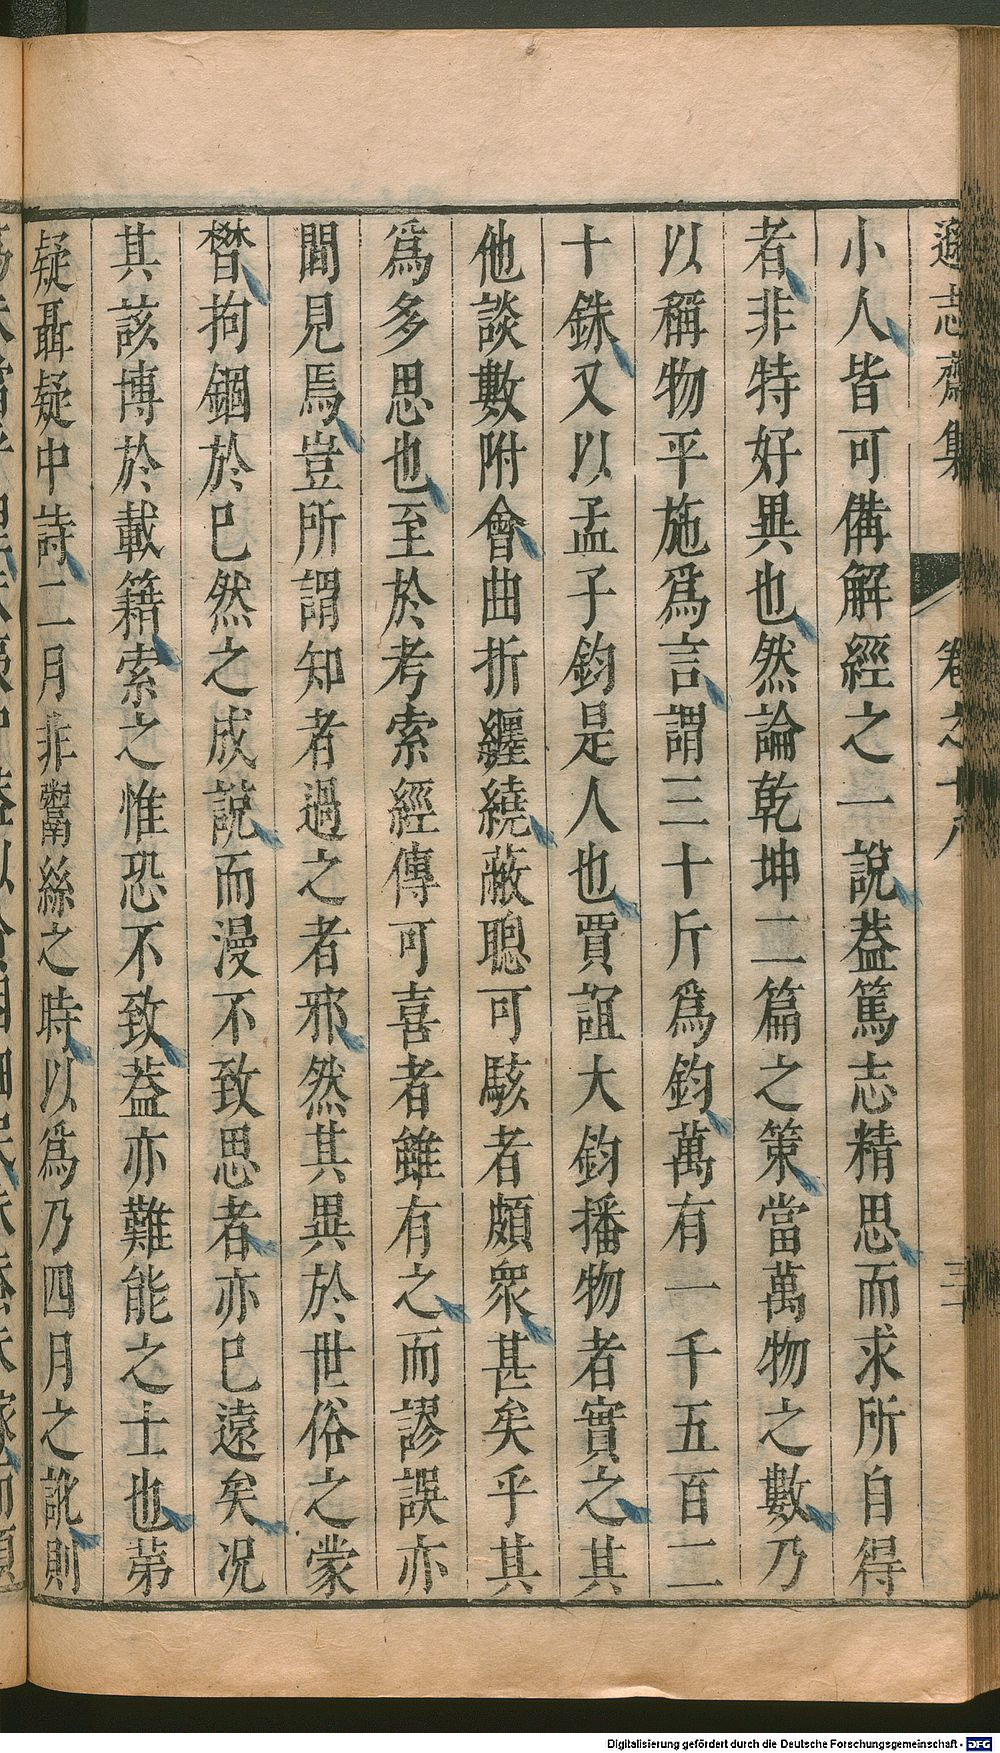 遜志齋集 卷之十八 三十
小人皆可備解經之一說葢篤志精思而求所自得
者非特好異也然論乾坤二篇之策當萬物之數乃
以稱物平施爲言謂三十斤爲鈞萬有一千五百二
十銖又以孟子鈞是人也賈誼大鈞播物者實之其
他談數附會曲折纏繞蔽聰可駭者頗衆甚矣乎其
爲多思也至於考索經傳可喜者雖有之而謬誤亦
間見焉豈所謂知者過之者邪然其異於世俗之蒙
朁拘錮於已然之成說而漫不致思者亦已遠矣况
其該博於載籍索之惟恐不致葢亦難能之士也第
疑聶疑中詩二月非鬻絲之時以爲乃四月之訛則
Digitalisierung gefördert durch die Deutsche Forschungsgemeinschaft - DFG